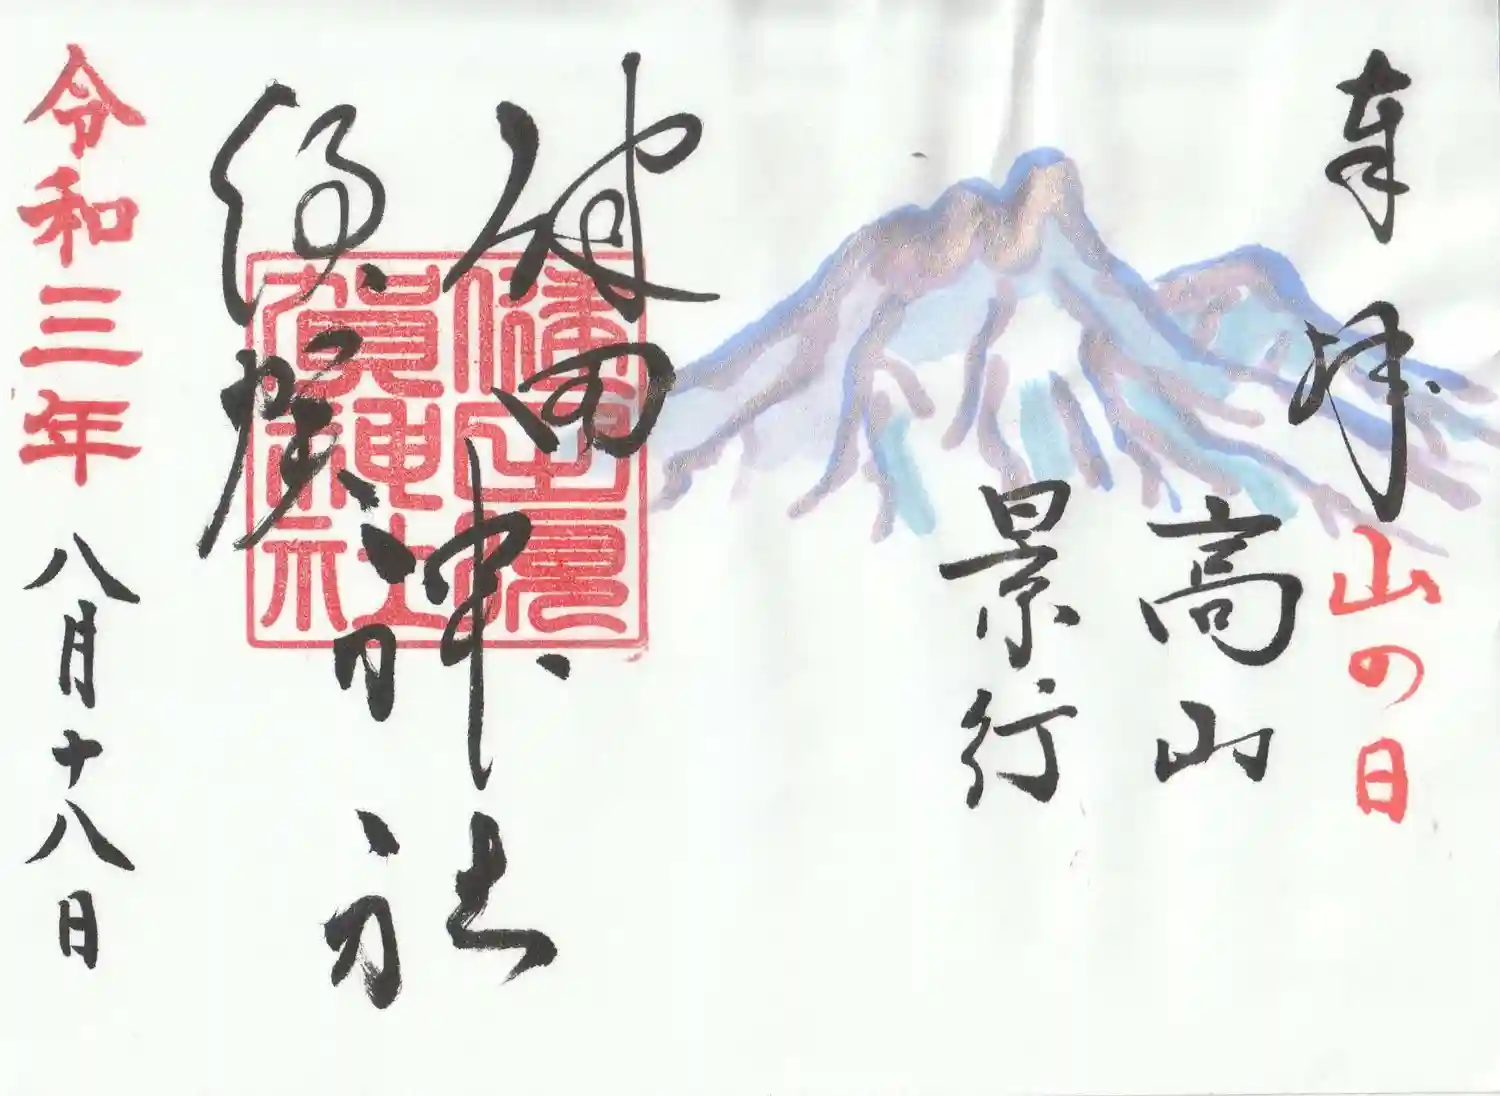 奉拝
山の日
高山
景行
健田
須賀
神社
健田須
賀神社
令和三年八月十八日